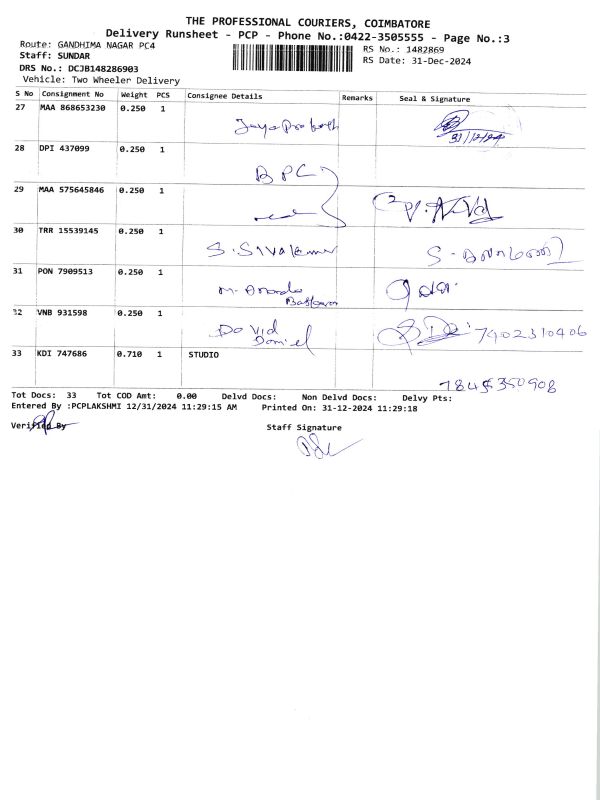 THE PROFESSIONAL COURIERS, COIMBATORE
Delivery Runsheet - PCP - Phone No.:0422-3505555 - Page No.:3
Route: GANDHIMA NAGAR PC4 RS No.: 1482869
Staff: SUNDAR RS Date: 31-Dec-2024
DRS No.: DCJB148286903
Vehicle: Two Wheeler Delivery
S No Consignment No Weight PCS Consignee Details Remarks Seal & Signature
27 MAA 868653230 0.250 1
Jaya Prakash 31/12/24
28 DPI 437099 0.250 1
BPC
29 MAA 575645846 0.250 1
30 TRR 15539145 0.250 1
S. Sivakumar
31 PON 7909513 0.250 1
32 VNB 931598 0.250 1
David 7902310406
Daniel
33 KDI 747686 0.710 1 STUDIO
7845350908
Tot Docs: 33 Tot COD Amt: 0.00 Delvd Docs: Non Delvd Docs: Delvy Pts:
Entered By :PCPLAKSHMI 12/31/2024 11:29:15 AM Printed On: 31-12-2024 11:29:18
Verified By Staff Signature